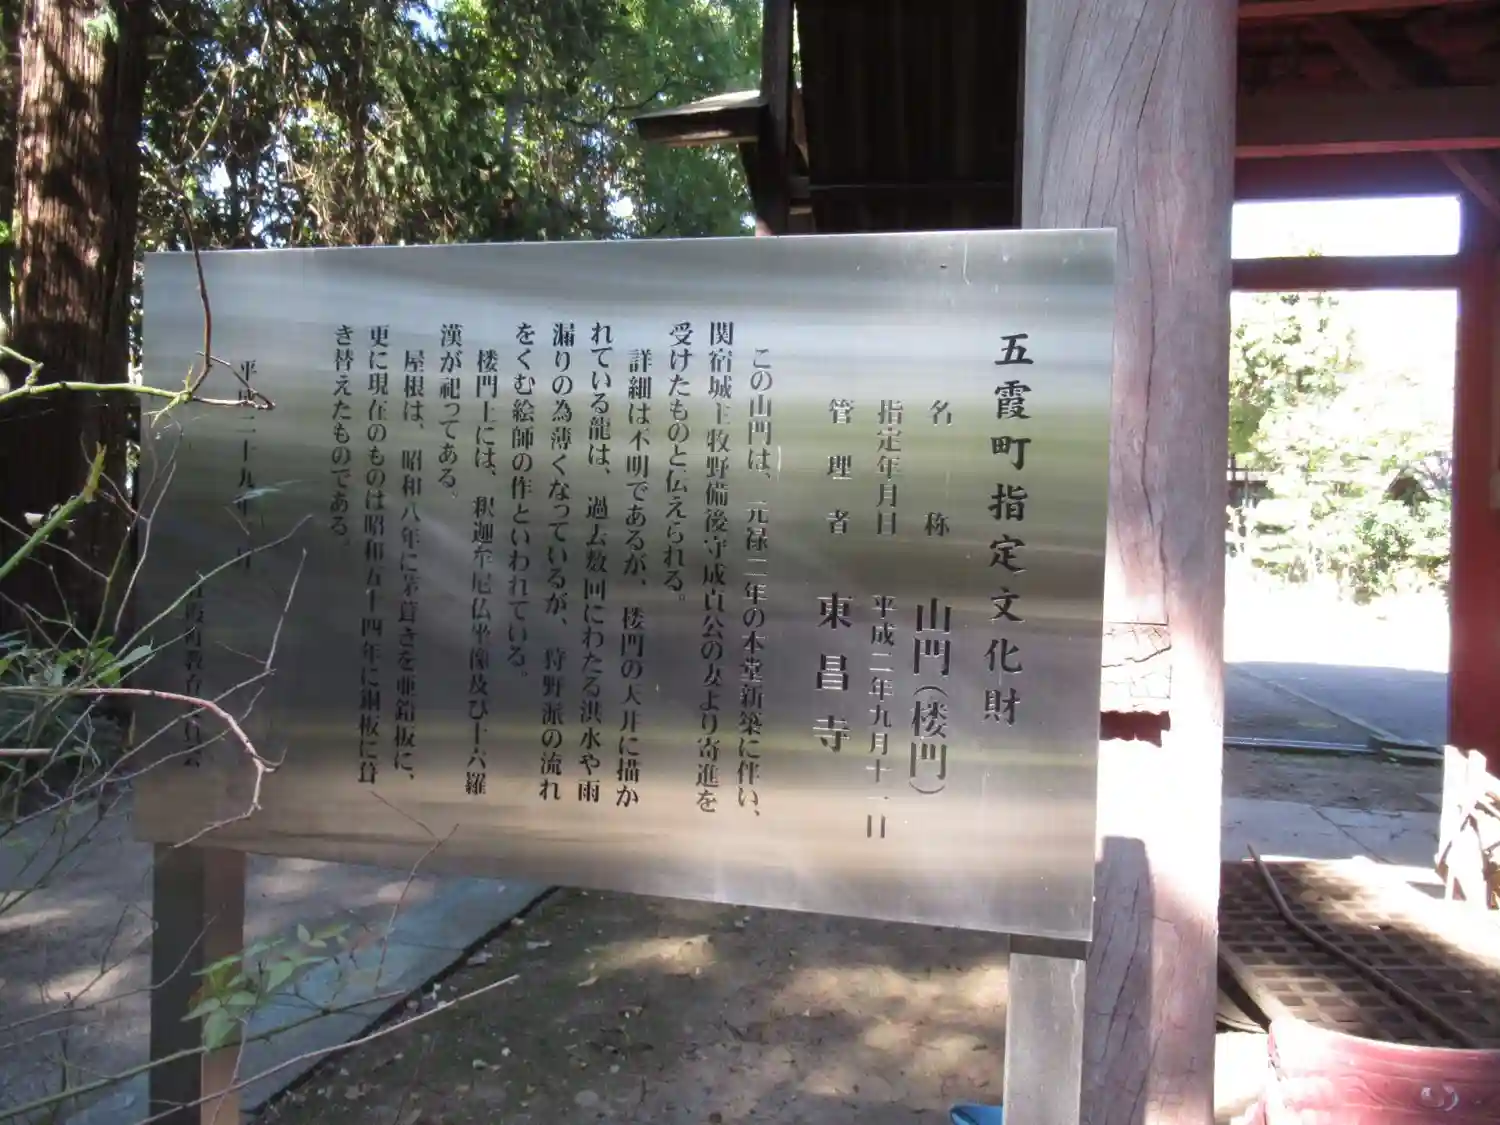 五霞町指定文化財
名称 山門(楼門)
指定年月日 平成二年九月十一日
管理者 東昌寺
この山門は、元禄二年の本堂新築に伴い、
関宿城主牧野備後守成貞公の女より寄進を
受けたものと伝えられる。
詳細は不明であるが、楼門の天井に描か
れている龍は、過去数回にわたる洪水や雨
漏りの為薄くなっているが、狩野派の流れ
をくむ絵師の作といわれている。
楼門上には、釈迦牟尼仏坐像及び十六羅
漢が祀ってある。
屋根は、昭和八年に茅葺きを亜鉛板に、
更に現在のものは昭和五十四年に銅板に葺
き替えたものである。
平成二十九年
霞町教育委員会